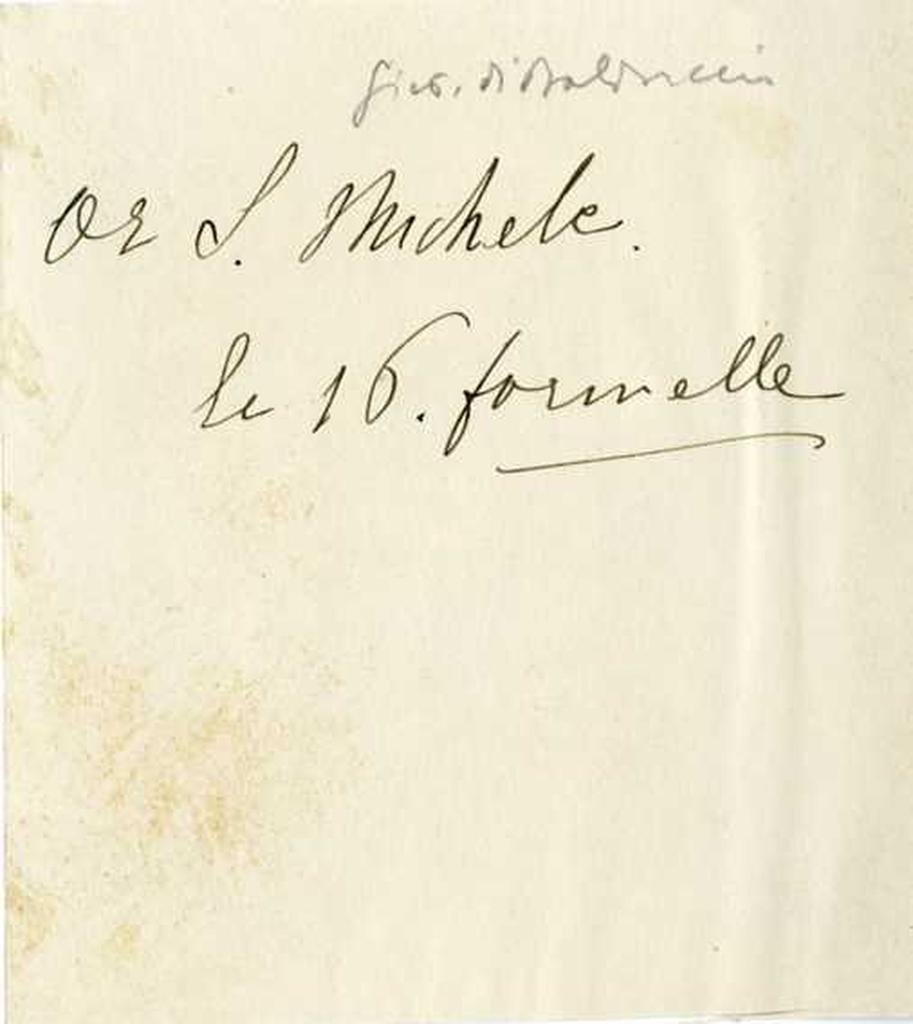 Giov. di Balduccio
Or S. Michele.
le 16. formelle